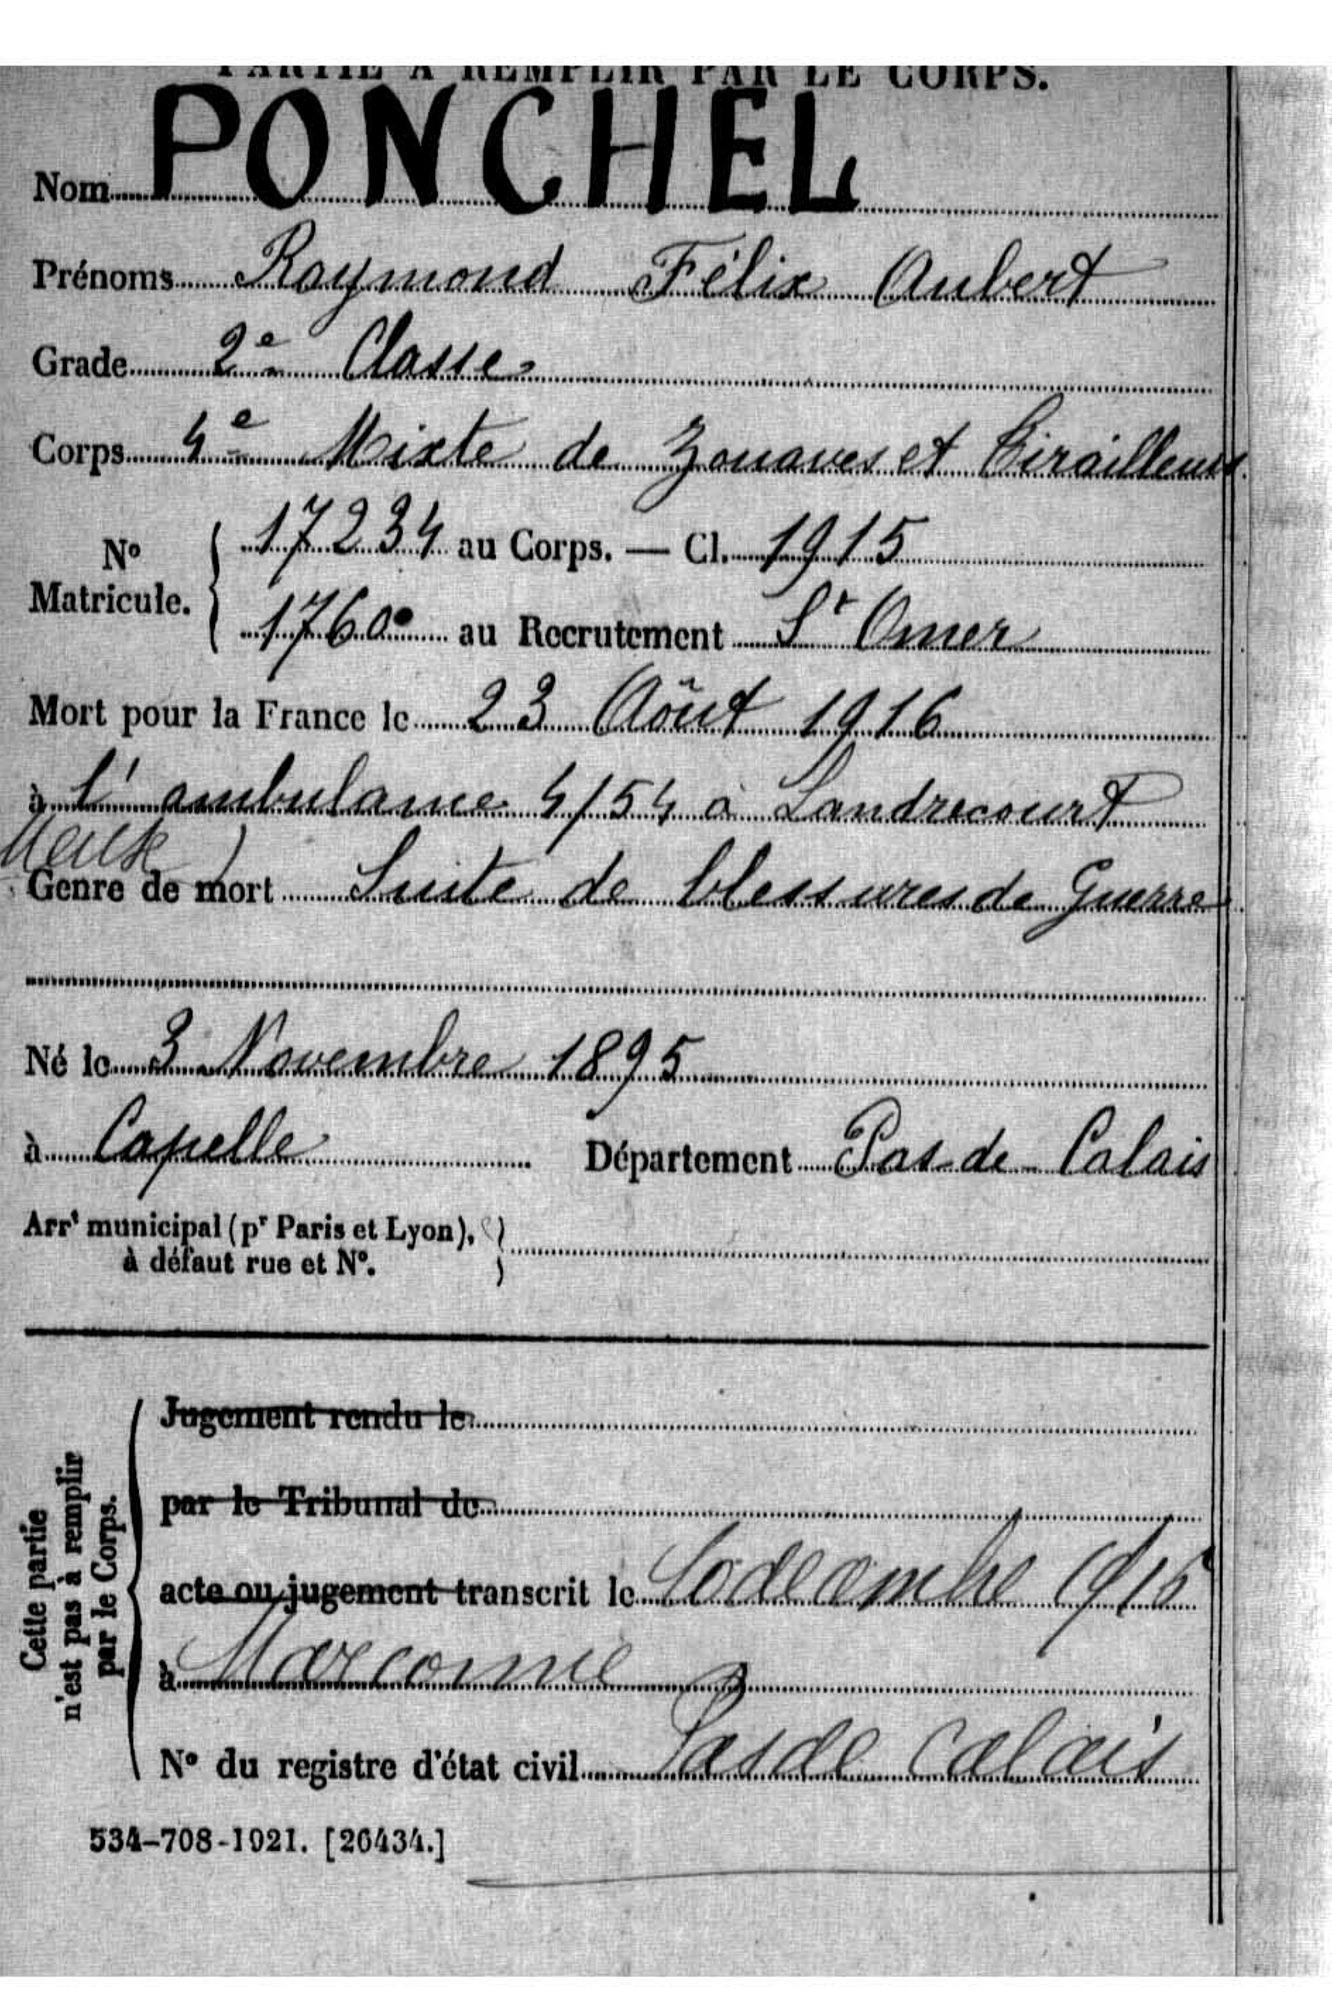 PARTIE À REMPLIR PAR LE CORPS.
Nom PONCHEL
Prénoms Raymond Félix Aubert
Grade 2e Classe
Corps 4e Mixte de Zouaves et Tirailleurs
No Matricule. 17234 au Corps. — Cl. 1915
1760 au Recrutement St Omer
Mort pour la France le 23 Août 1916
à l'ambulance 4/54 à Landrecourt
Meuse)
Genre de mort Suite de blessures de Guerre
Né le 3 Novembre 1895
à Capelle Département Pas de Calais
Arrt municipal (pr Paris et Lyon),
à défaut rue et No.
Cette partie
n'est pas à remplir
par le Corps.
Jugement rendu le
par le Tribunal de
acte ou jugement transcrit le décembre 1916
à Marconne
No du registre d'état civil Pas de Calais
534-708-1921. [26434.]